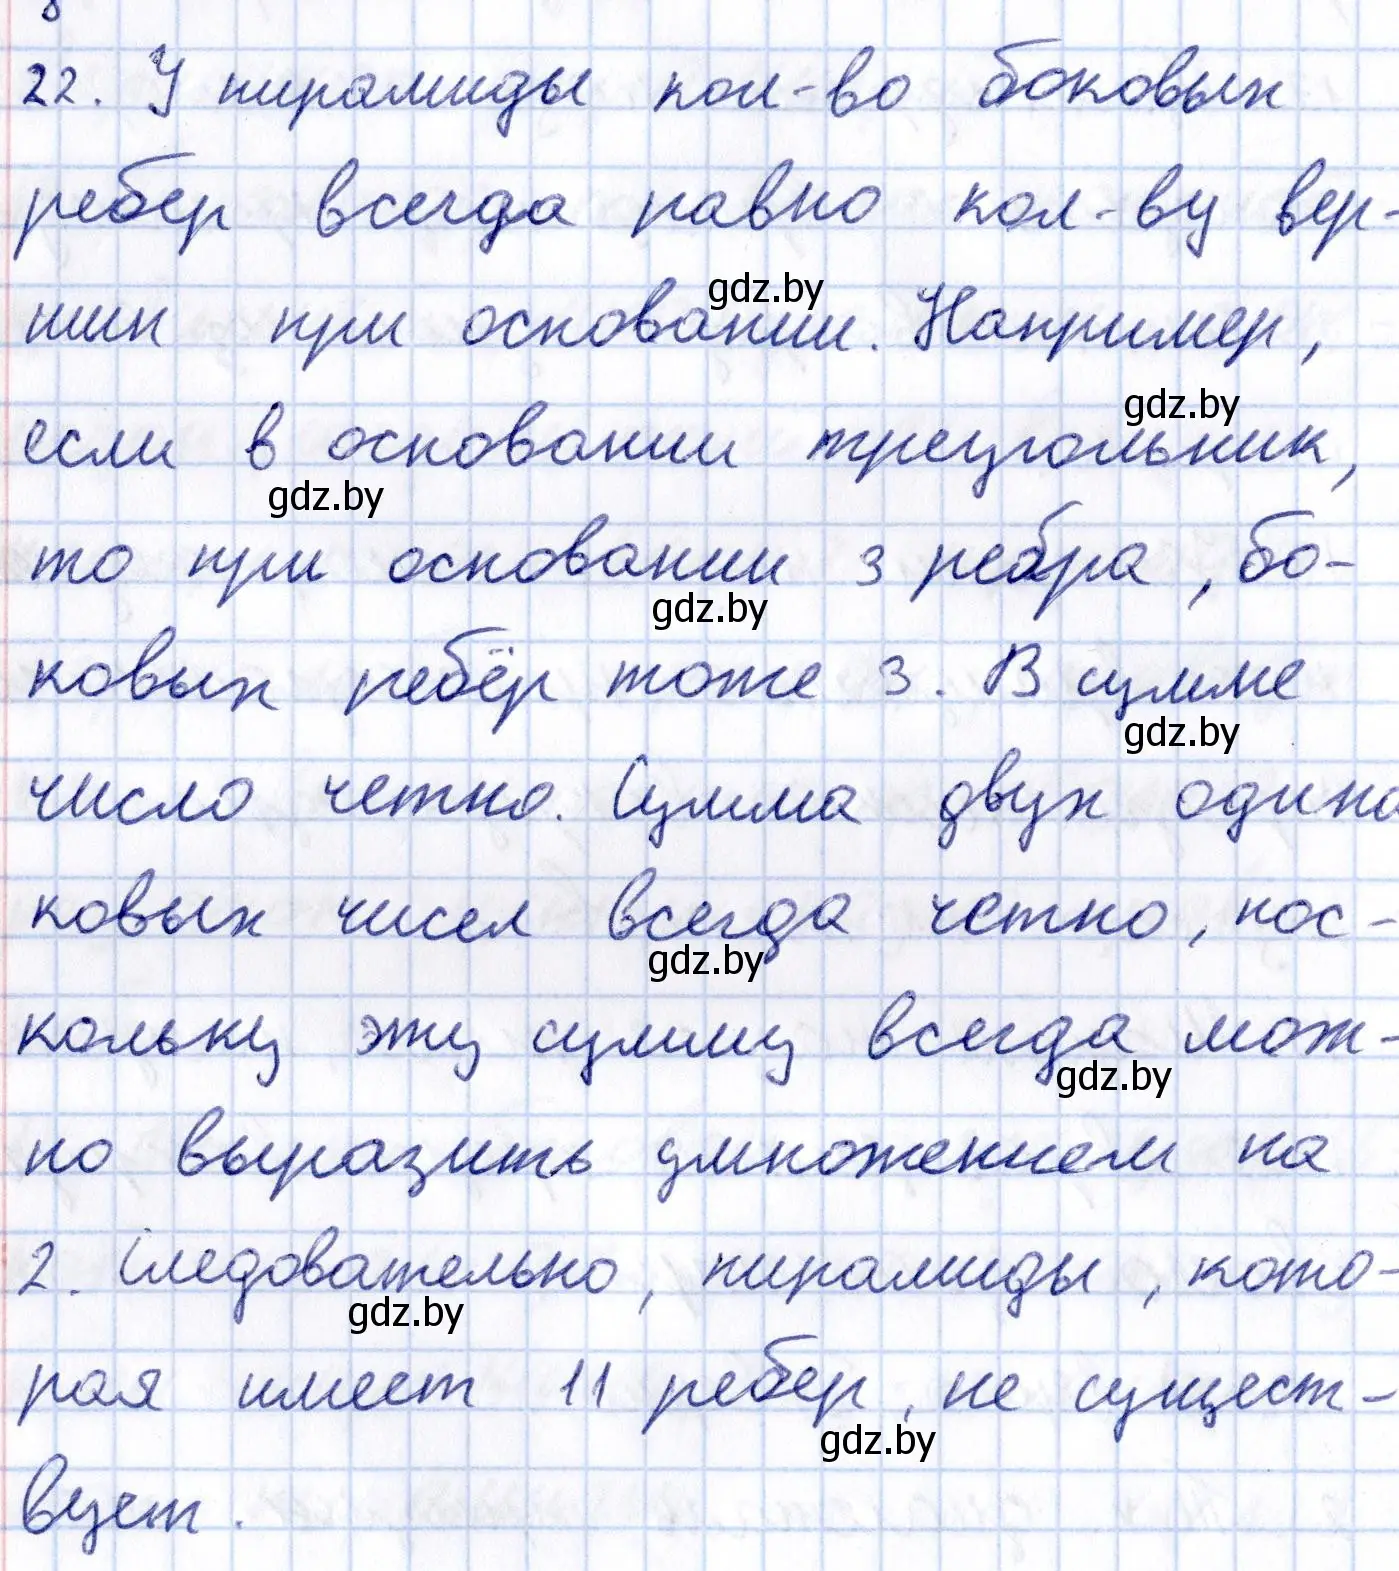 22. У пирамиды кол-во боковых
ребер всегда равно кол-ву вер-
шин при основании. Например,
gdz.by
gdz.by
если в основании треугольник,
gdz.by
то при основании 3 ребра, бо-
gdz.by
ковых ребёр тоже 3. В сумме
gdz.by
число четно. Сумма двух одина
ковых чисел всегда четно, пос-
gdz.by
кольку эту сумму всегда мож-
gdz.by
но выразить умножением на
2. Следовательно, пирамиды, кото-
gdz.by
рая имеет 11 ребер, не сущест-
gdz.by
вует.